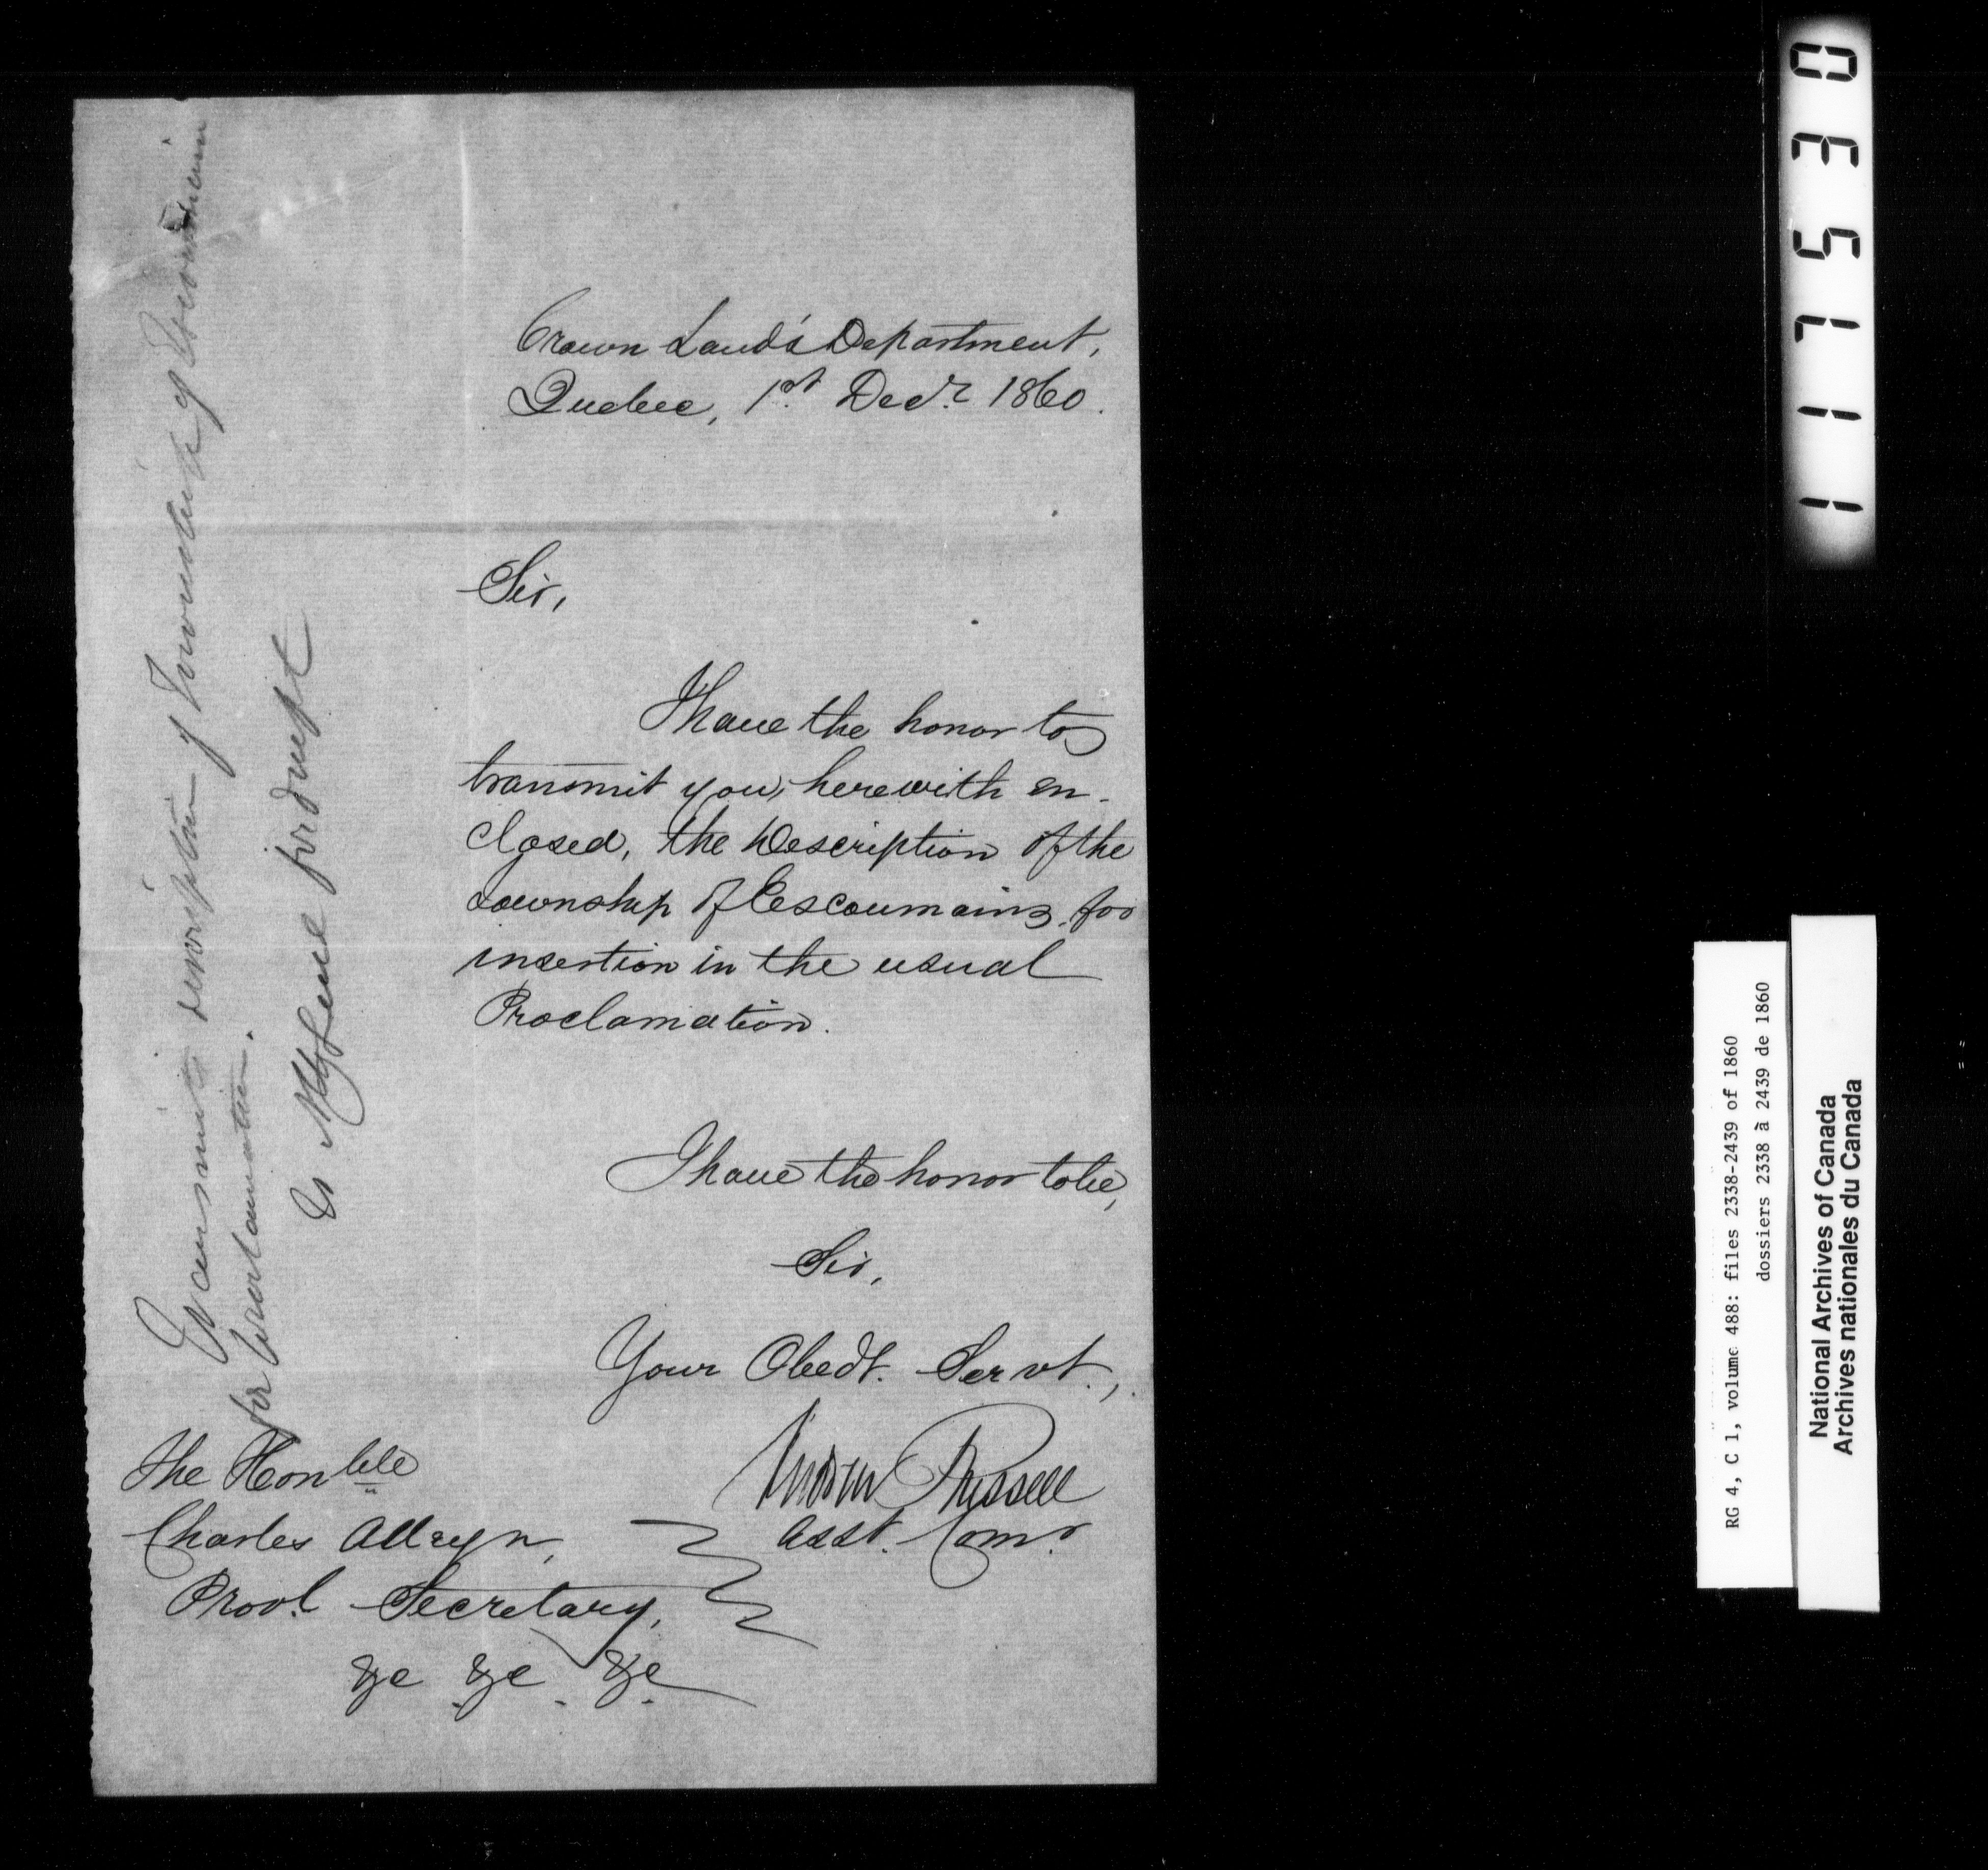 Crown Lands Department,
Quebec, 1st Decr. 1860.
Sir,
I have the honor to
transmit you, herewith en-
closed, the Description of the
Township of Escoumains, for
insertion in the usual
Proclamation.
I have the honor to be,
Sir,
Your Obedt. Servt.,
Andrew Russell
Asst. Comr.
The Honble
Charles Alleyn,
Provl. Secretary,
&c &c. &c.
Transmits description of Township of Escoumain
for Proclamation.
for draft
117530
RG 4, C 1, volume 488: files 2338-2439 of 1860
dossiers 2338 à 2439 de 1860
National Archives of Canada
Archives nationales du Canada